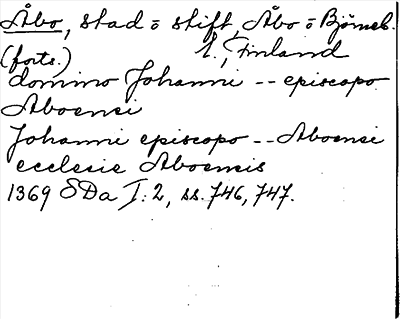 Åbo, stad o stift, Åbo o Björneb.
(forts.) l., Finland
domino Johanni -- episcopo
Aboensi
Johanni episcopo -- Aboensi
ecclesie Aboensis
1369 SDa I: 2, ss. 746, 747.